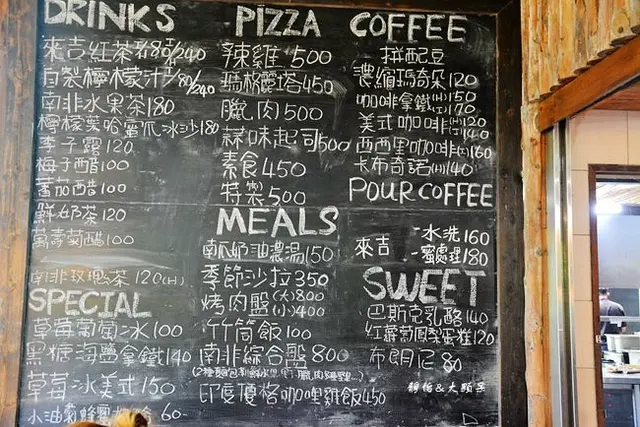 DRINKS
來吉紅茶 180/240
自製檸檬汁 180/240
南非水果茶180
檸檬葉哈蜜瓜冰沙180
李子露120
梅子醋100
蕃茄醋100
鮮奶茶120
蘿蔔醋100
南非玫瑰茶120(H)
SPECIAL
草莓葡萄冰100
黑糖海鹽拿鐵140
草莓冰美式150
小油菊蜂蜜 60
PIZZA
辣雞500
瑪格麗塔450
臘肉500
蒜味起司500
素食450
特製500
MEALS
南瓜奶油濃湯150
季節沙拉350
烤肉盤(大)800
(小)400
竹筒飯100
南非綜合盤800
(2種麵包 臘肉
印度優格咖哩雞飯450
COFFEE
拼配豆
濃縮瑪奇朵120
咖啡拿鐵(H)150
(I)170
美式咖啡(H)120
(I)140
西西里咖啡150
卡布奇諾(H)140
POUR COFFEE
來吉
-水洗160
-蜜處理180
SWEET
巴斯克乳酪140
紅蘿蔔鳳梨蛋糕120
布朗尼80
靜怡&大頭季